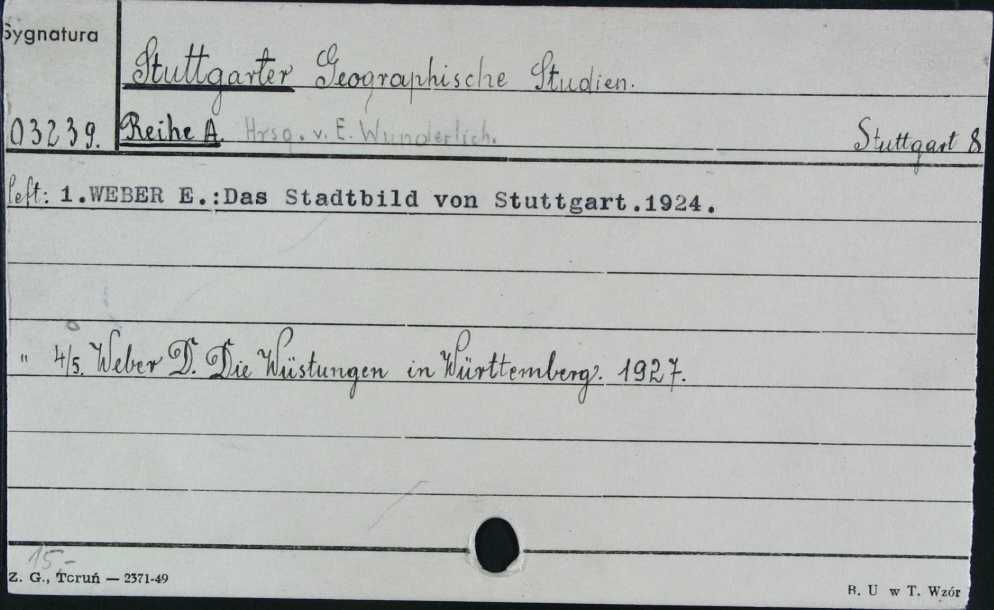 Sygnatura
Stuttgarter Geographische Studien.
03239. Reihe A. Hrsg. v. E. Wunderlich. Stuttgart 8
Heft: 1.WEBER E.:Das Stadtbild von Stuttgart.1924.
" 4/5. Weber D. Die Wüstungen in Württemberg. 1927.
15,-
Z. G., Toruń — 2371-49
B. U w T. Wzór